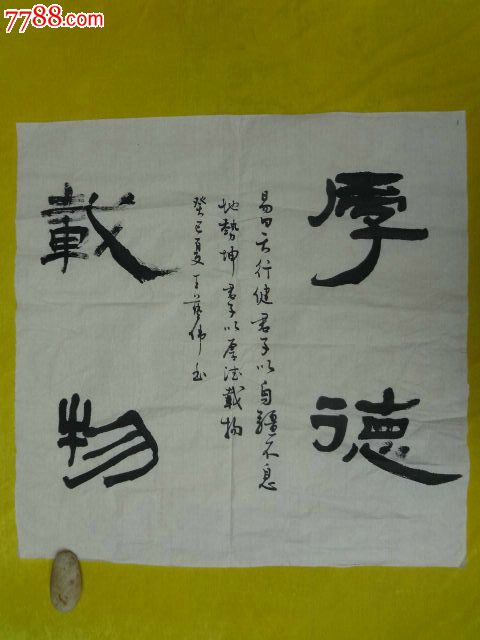 7788.com
厚德
載物
易曰天行健君子以自疆不息
地勢坤君子以厚德載物
癸巳夏丁 伟书